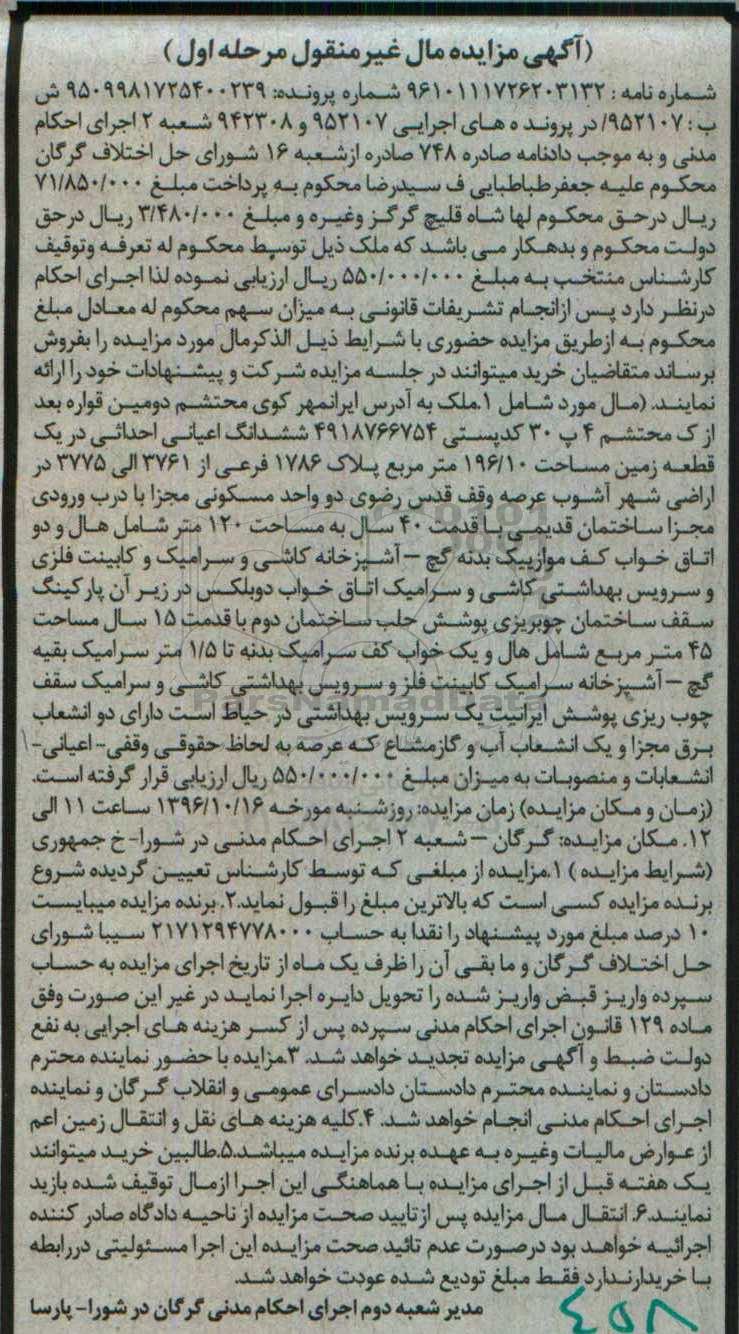 (آگهی مزایده مال غیرمنقول مرحله اول)
شماره نامه : ۹۶۱۰۱۱۱۷۲۶۲۰۳۱۳۲ شماره پرونده: ۹۵۰۹۹۸۱۷۲۵۴۰۰۲۳۹ ش
ب : ۹۵۲۱۰۷/ در پرونده های اجرایی ۹۵۲۱۰۷ و ۹۴۲۳۰۸ شعبه ۲ اجرای احکام
مدنی و به موجب دادنامه صادره ۷۴۸ صادره ازشعبه ۱۶ شورای حل اختلاف گرگان
محکوم علیه جعفرطباطبایی ف سیدرضا محکوم به پرداخت مبلغ ۷۱/۸۵۰/۰۰۰
ریال درحق محکوم لها شاه قلیچ گرگز وغیره و مبلغ ۳/۴۸۰/۰۰۰ ریال درحق
دولت محکوم و بدهکار می باشد که ملک ذیل توسط محکوم له تعرفه وتوقیف
کارشناس منتخب به مبلغ ۵۵۰/۰۰۰/۰۰۰ ریال ارزیابی نموده لذا اجرای احکام
درنظر دارد پس ازانجام تشریفات قانونی به میزان سهم محکوم له معادل مبلغ
محکوم به ازطریق مزایده حضوری با شرایط ذیل الذکرمال مورد مزایده را بفروش
برساند متقاضیان خرید میتوانند در جلسه مزایده شرکت و پیشنهادات خود را ارائه
نمایند. (مال مورد شامل ۱.ملک به آدرس ایرانمهر کوی محتشم دومین قواره بعد
از ک محتشم ۴ پ ۳۰ کدپستی ۴۹۱۸۷۶۶۷۵۴ ششدانگ اعیانی احداثی در یک
قطعه زمین مساحت ۱۹۶/۱۰ متر مربع پلاک ۱۷۸۶ فرعی از ۳۷۶۱ الی ۳۷۷۵ در
اراضی شهر آشوب عرصه وقف قدس رضوی دو واحد مسکونی مجزا با درب ورودی
مجزا ساختمان قدیمی با قدمت ۴۰ سال به مساحت ۱۲۰ متر شامل هال و دو
اتاق خواب کف موازییک بدنه گچ – آشپزخانه کاشی و سرامیک و کابینت فلزی
و سرویس بهداشتی کاشی و سرامیک اتاق خواب دوبلکس در زیر آن پارکینگ
سقف ساختمان چوبریزی پوشش حلب ساختمان دوم با قدمت ۱۵ سال مساحت
۴۵ متر مربع شامل هال و یک خواب کف سرامیک بدنه تا ۱/۵ متر سرامیک بقیه
گچ – آشپزخانه سرامیک کابینت فلز و سرویس بهداشتی کاشی و سرامیک سقف
چوب ریزی پوشش ایرانیت یک سرویس بهداشتی در حیاط است دارای دو انشعاب
برق مجزا و یک انشعاب آب و گازمشاع که عرصه به لحاظ حقوقی وقفی- اعیانی-
انشعابات و منصوبات به میزان مبلغ ۵۵۰/۰۰۰/۰۰۰ ریال ارزیابی قرار گرفته است.
(زمان و مکان مزایده) زمان مزایده: روزشنبه مورخه ۱۳۹۶/۱۰/۱۶ ساعت ۱۱ الی
۱۲. مکان مزایده: گرگان – شعبه ۲ اجرای احکام مدنی در شورا- خ جمهوری
(شرایط مزایده ) ۱.مزایده از مبلغی که توسط کارشناس تعیین گردیده شروع
برنده مزایده کسی است که بالاترین مبلغ را قبول نماید.۲. برنده مزایده میبایست
۱۰ درصد مبلغ مورد پیشنهاد را نقدا به حساب ۲۱۷۱۲۹۴۷۷۸۰۰۰ سیبا شورای
حل اختلاف گرگان و ما بقی آن را ظرف یک ماه از تاریخ اجرای مزایده به حساب
سپرده واریز قبض واریز شده را تحویل دایره اجرا نماید در غیر این صورت وفق
ماده ۱۲۹ قانون اجرای احکام مدنی سپرده پس از کسر هزینه های اجرایی به نفع
دولت ضبط و آگهی مزایده تجدید خواهد شد. ۳.مزایده با حضور نماینده محترم
دادستان و نماینده محترم دادستان دادسرای عمومی و انقلاب گرگان و نماینده
اجرای احکام مدنی انجام خواهد شد. ۴.کلیه هزینه های نقل و انتقال زمین اعم
از عوارض مالیات وغیره به عهده برنده مزایده میباشد.۵.طالبین خرید میتوانند
یک هفته قبل از اجرای مزایده با هماهنگی این اجرا ازمال توقیف شده بازید
نمایند.۶. انتقال مال مزایده پس ازتایید صحت مزایده از ناحیه دادگاه صادر کننده
اجرائیه خواهد بود درصورت عدم تائید صحت مزایده این اجرا مسئولیتی دررابطه
با خریدارندارد فقط مبلغ تودیع شده عودت خواهد شد.
مدیر شعبه دوم اجرای احکام مدنی گرگان در شورا- پارسا
ParsNamadData